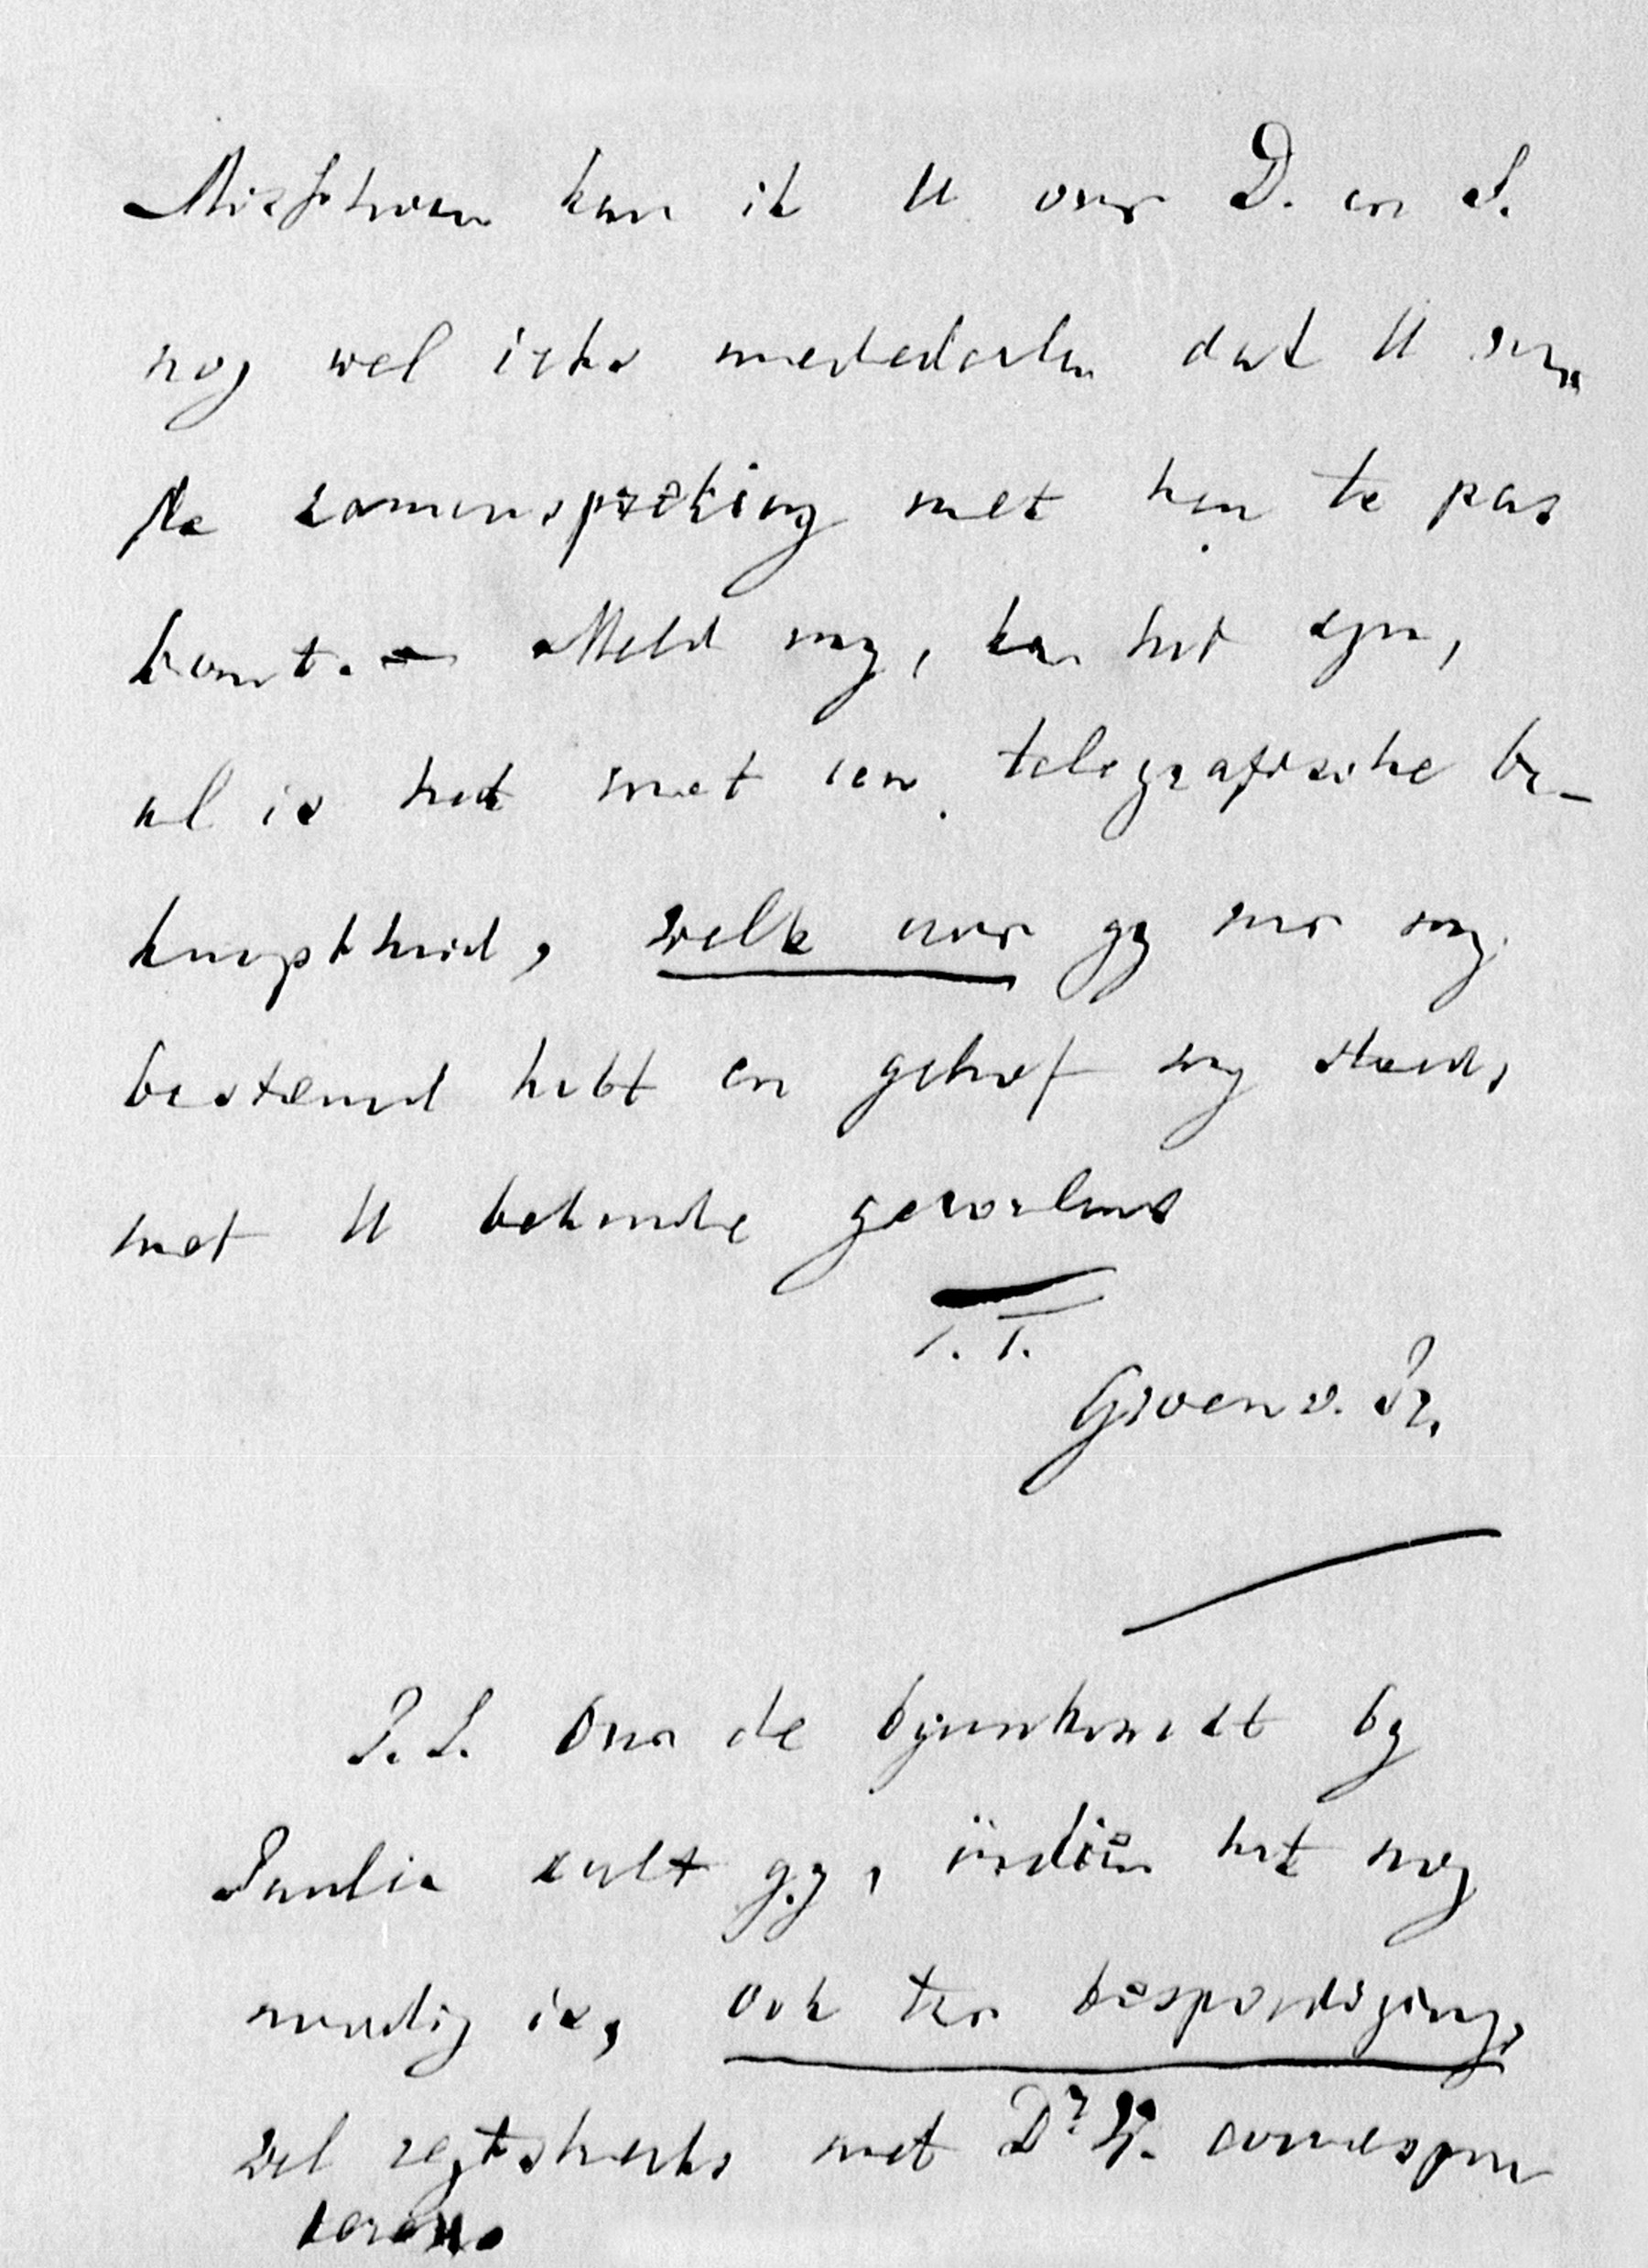 Misschien kan ik U over D. en S.
nog wel iets mededeelen dat U vóór
de zamenspreking met hen te pas
komt. — Meld my, kan het zyn,
al is het met een telegrafische be-
knoptheid, welk uur gy voor my
bestemd hebt en geloof my steeds
met U bekende gevoelens
T.T.
Groen v. Pr.
P.S. Over de byeenkomst by
Paulia zult gy, indien het nog
noodig is, ook ter bespoediging,
wel regtstreeks met Dr. correspon
deren